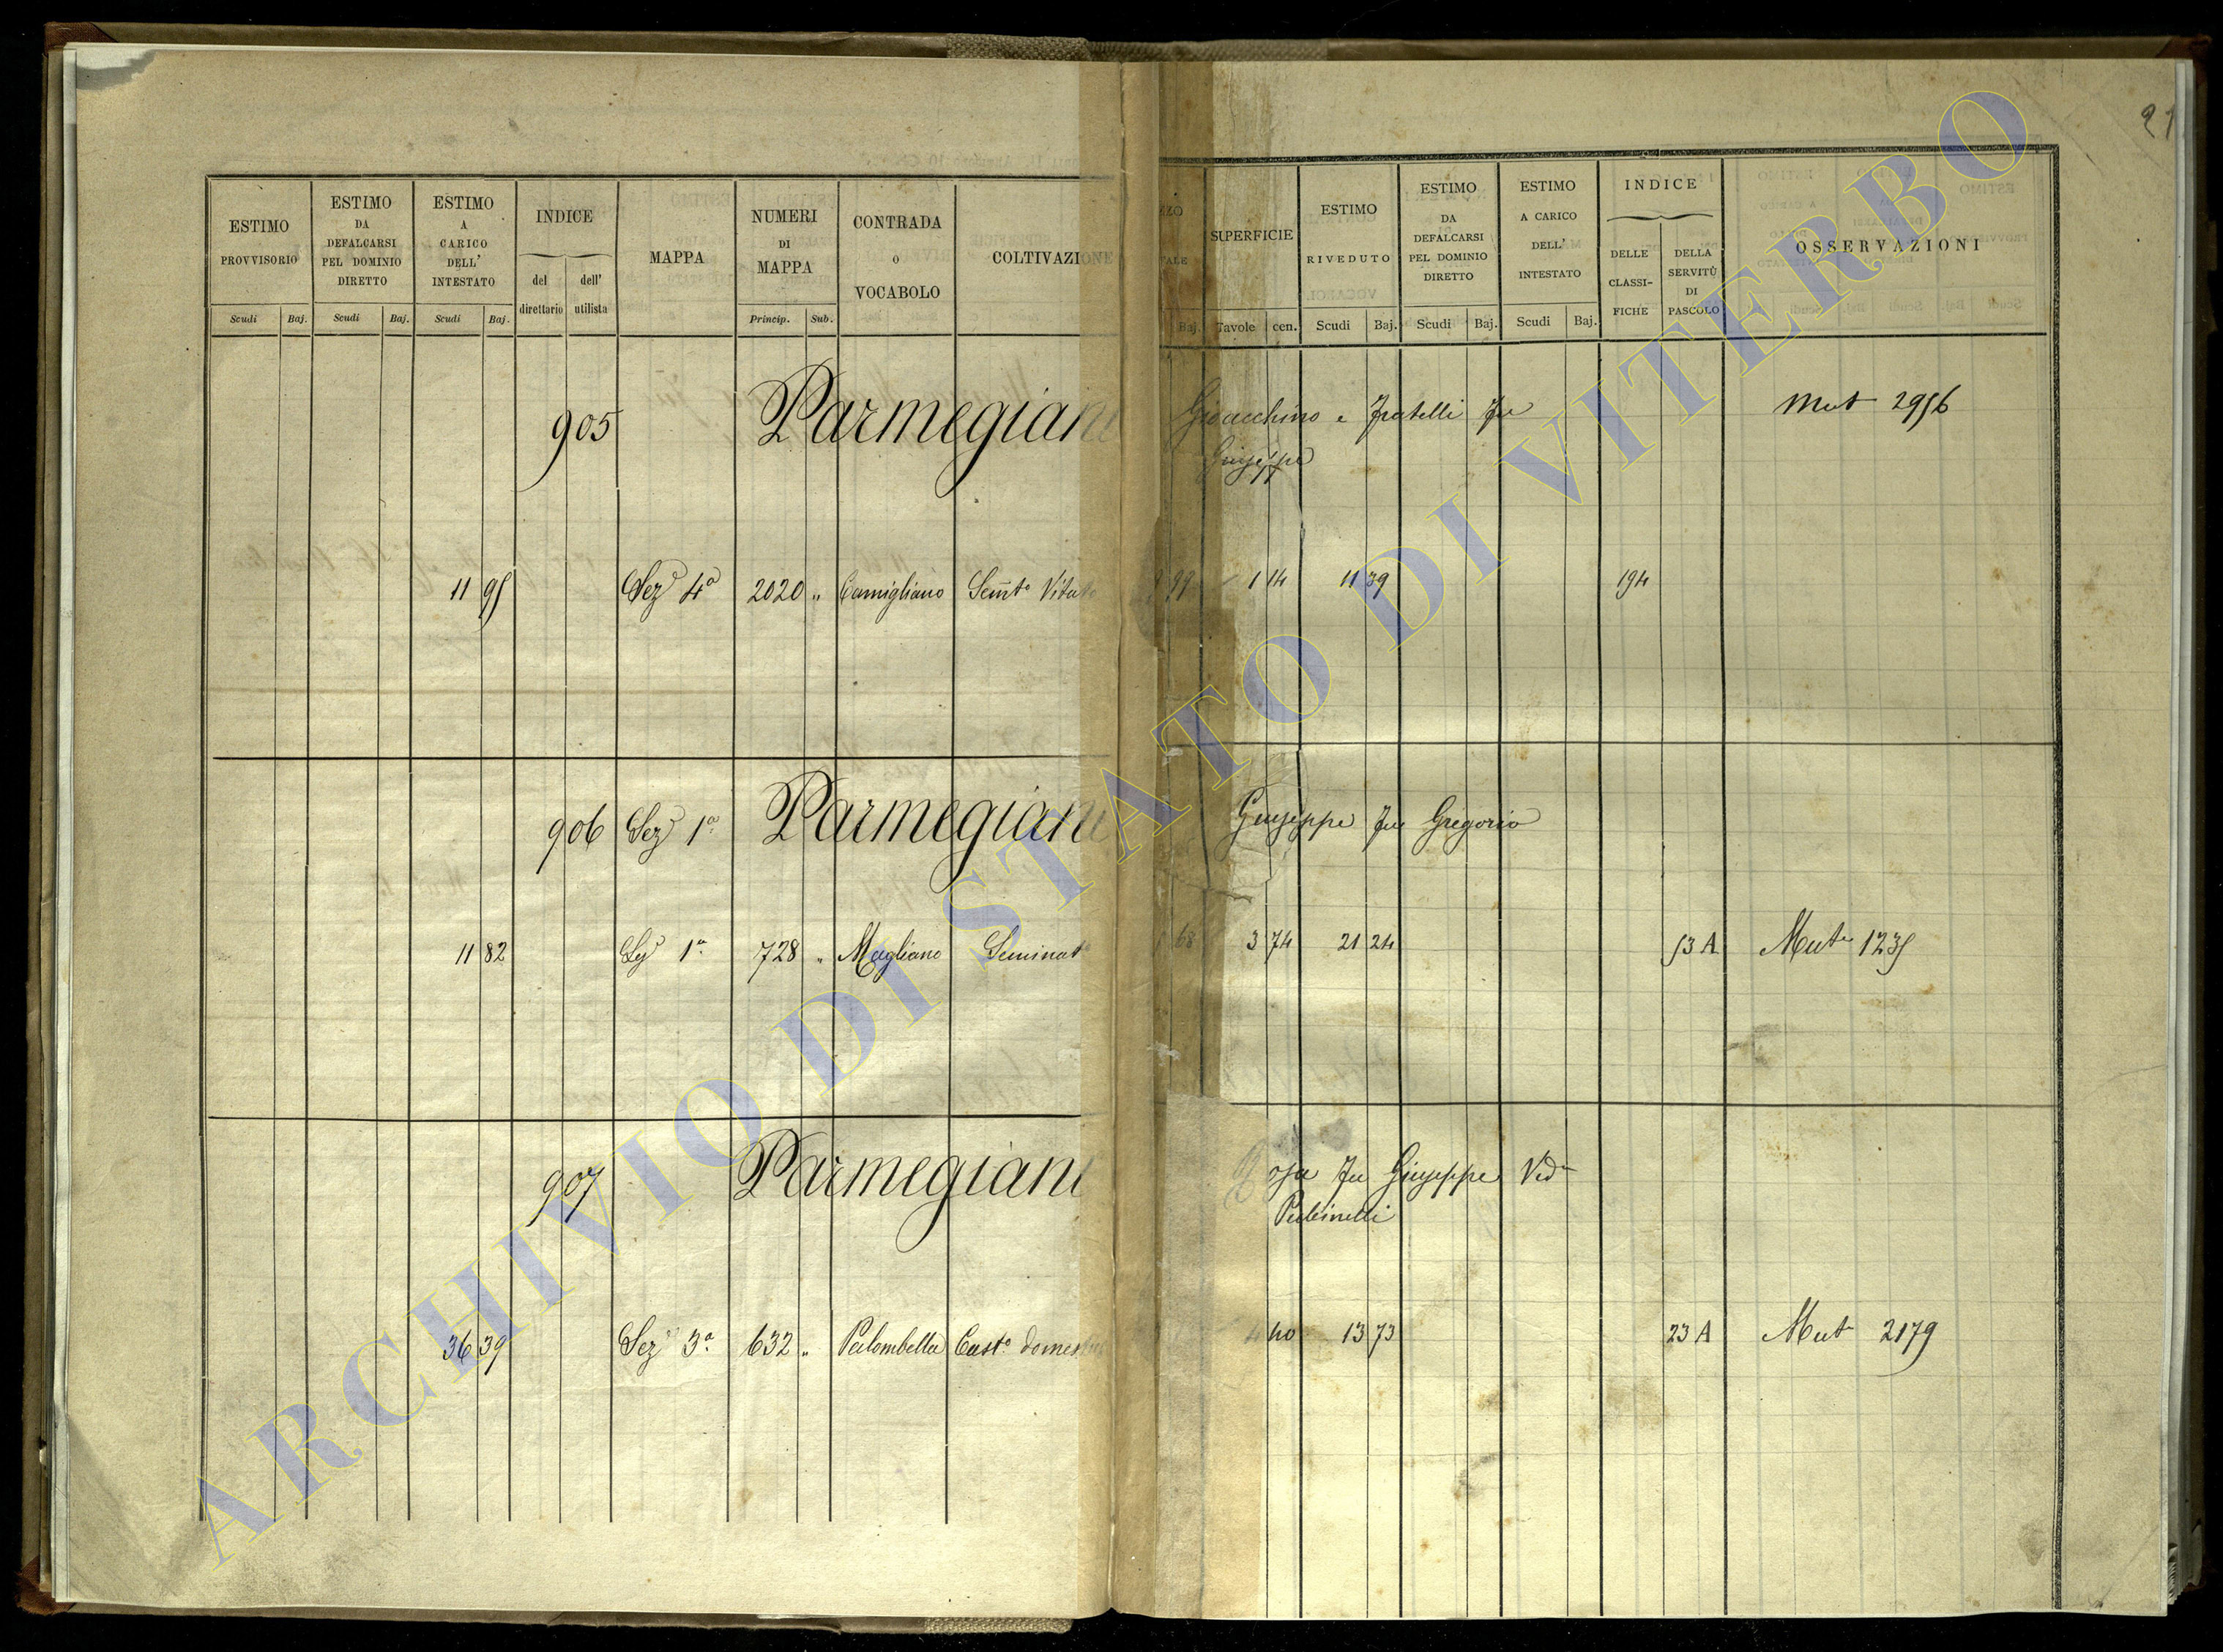 21
ESTIMO PROVVISORIO
Scudi Baj.
ESTIMO DA DEFALCARSI PEL DOMINIO DIRETTO
Scudi Baj.
ESTIMO A CARICO DELL' INTESTATO
Scudi Baj.
INDICE
del direttario
dell' utilista
MAPPA
NUMERI DI MAPPA
Princip. Sub.
CONTRADA O VOCABOLO
COLTIVAZIONE
Baj.
SUPERFICIE
Tavole cen.
ESTIMO RIVEDUTO
Scudi Baj.
ESTIMO DA DEFALCARSI PEL DOMINIO DIRETTO
Scudi Baj.
ESTIMO A CARICO DELL' INTESTATO
Scudi Baj.
INDICE
DELLE CLASSI-FICHE
DELLA SERVITÙ DI PASCOLO
OSSERVAZIONI
905 Parmegiani Gioacchino e Fratelli fu Mut 2956
Giuseppe
11 95 Sez 4a 2020 " Camigliano Semto Vitato 99 1 14 11 39 194
906 Sez 1a Parmegiani Giuseppe fu Gregorio
11 82 Sez 1a 728 " Magliano Seminato 68 3 74 21 24 53 A Mut 1235
907 Parmegiani Rosa fu Giuseppe Vida
36 39 Sez 3a 632 " Palombella Casto domes 4 40 13 73 23 A Mut 2179
ARCHIVIO DI STATO DI VITERBO